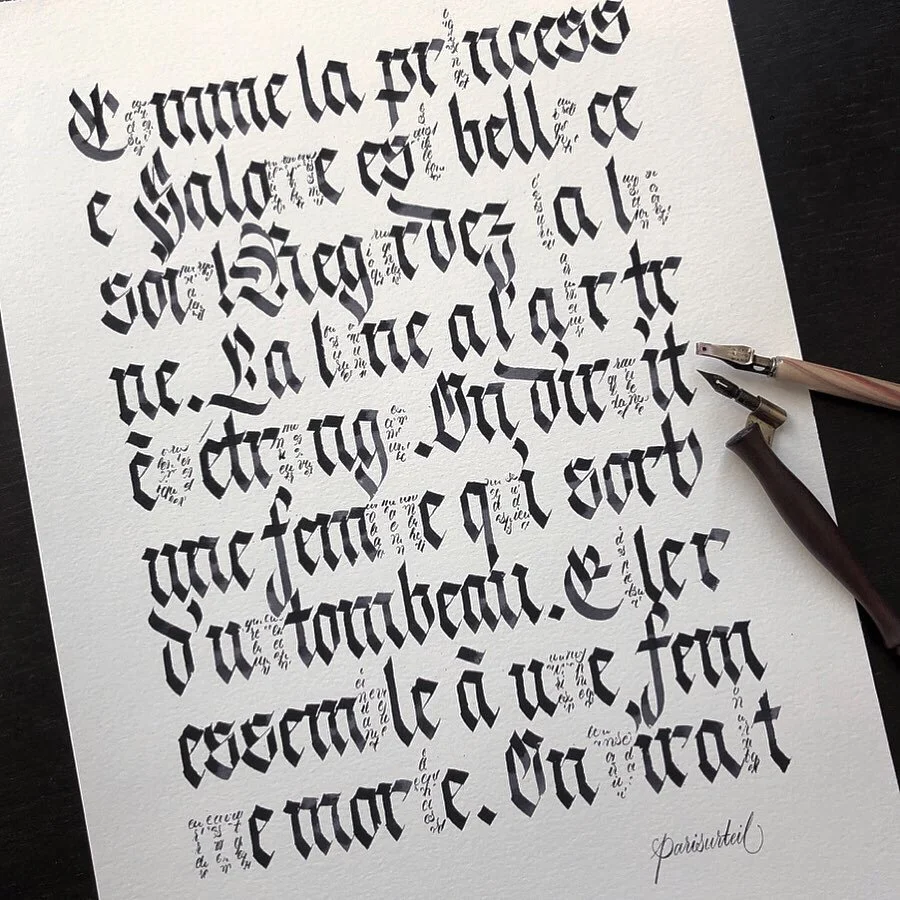 Comme la princess
e Salome est belle ce
soir! Regardez la lu
ne. La lune a l'air tr
ès étrange. On dirait
une femme qui sort
d'un tombeau. Elle r
essemble à une fem
me morte. On dirait
Parisurteil